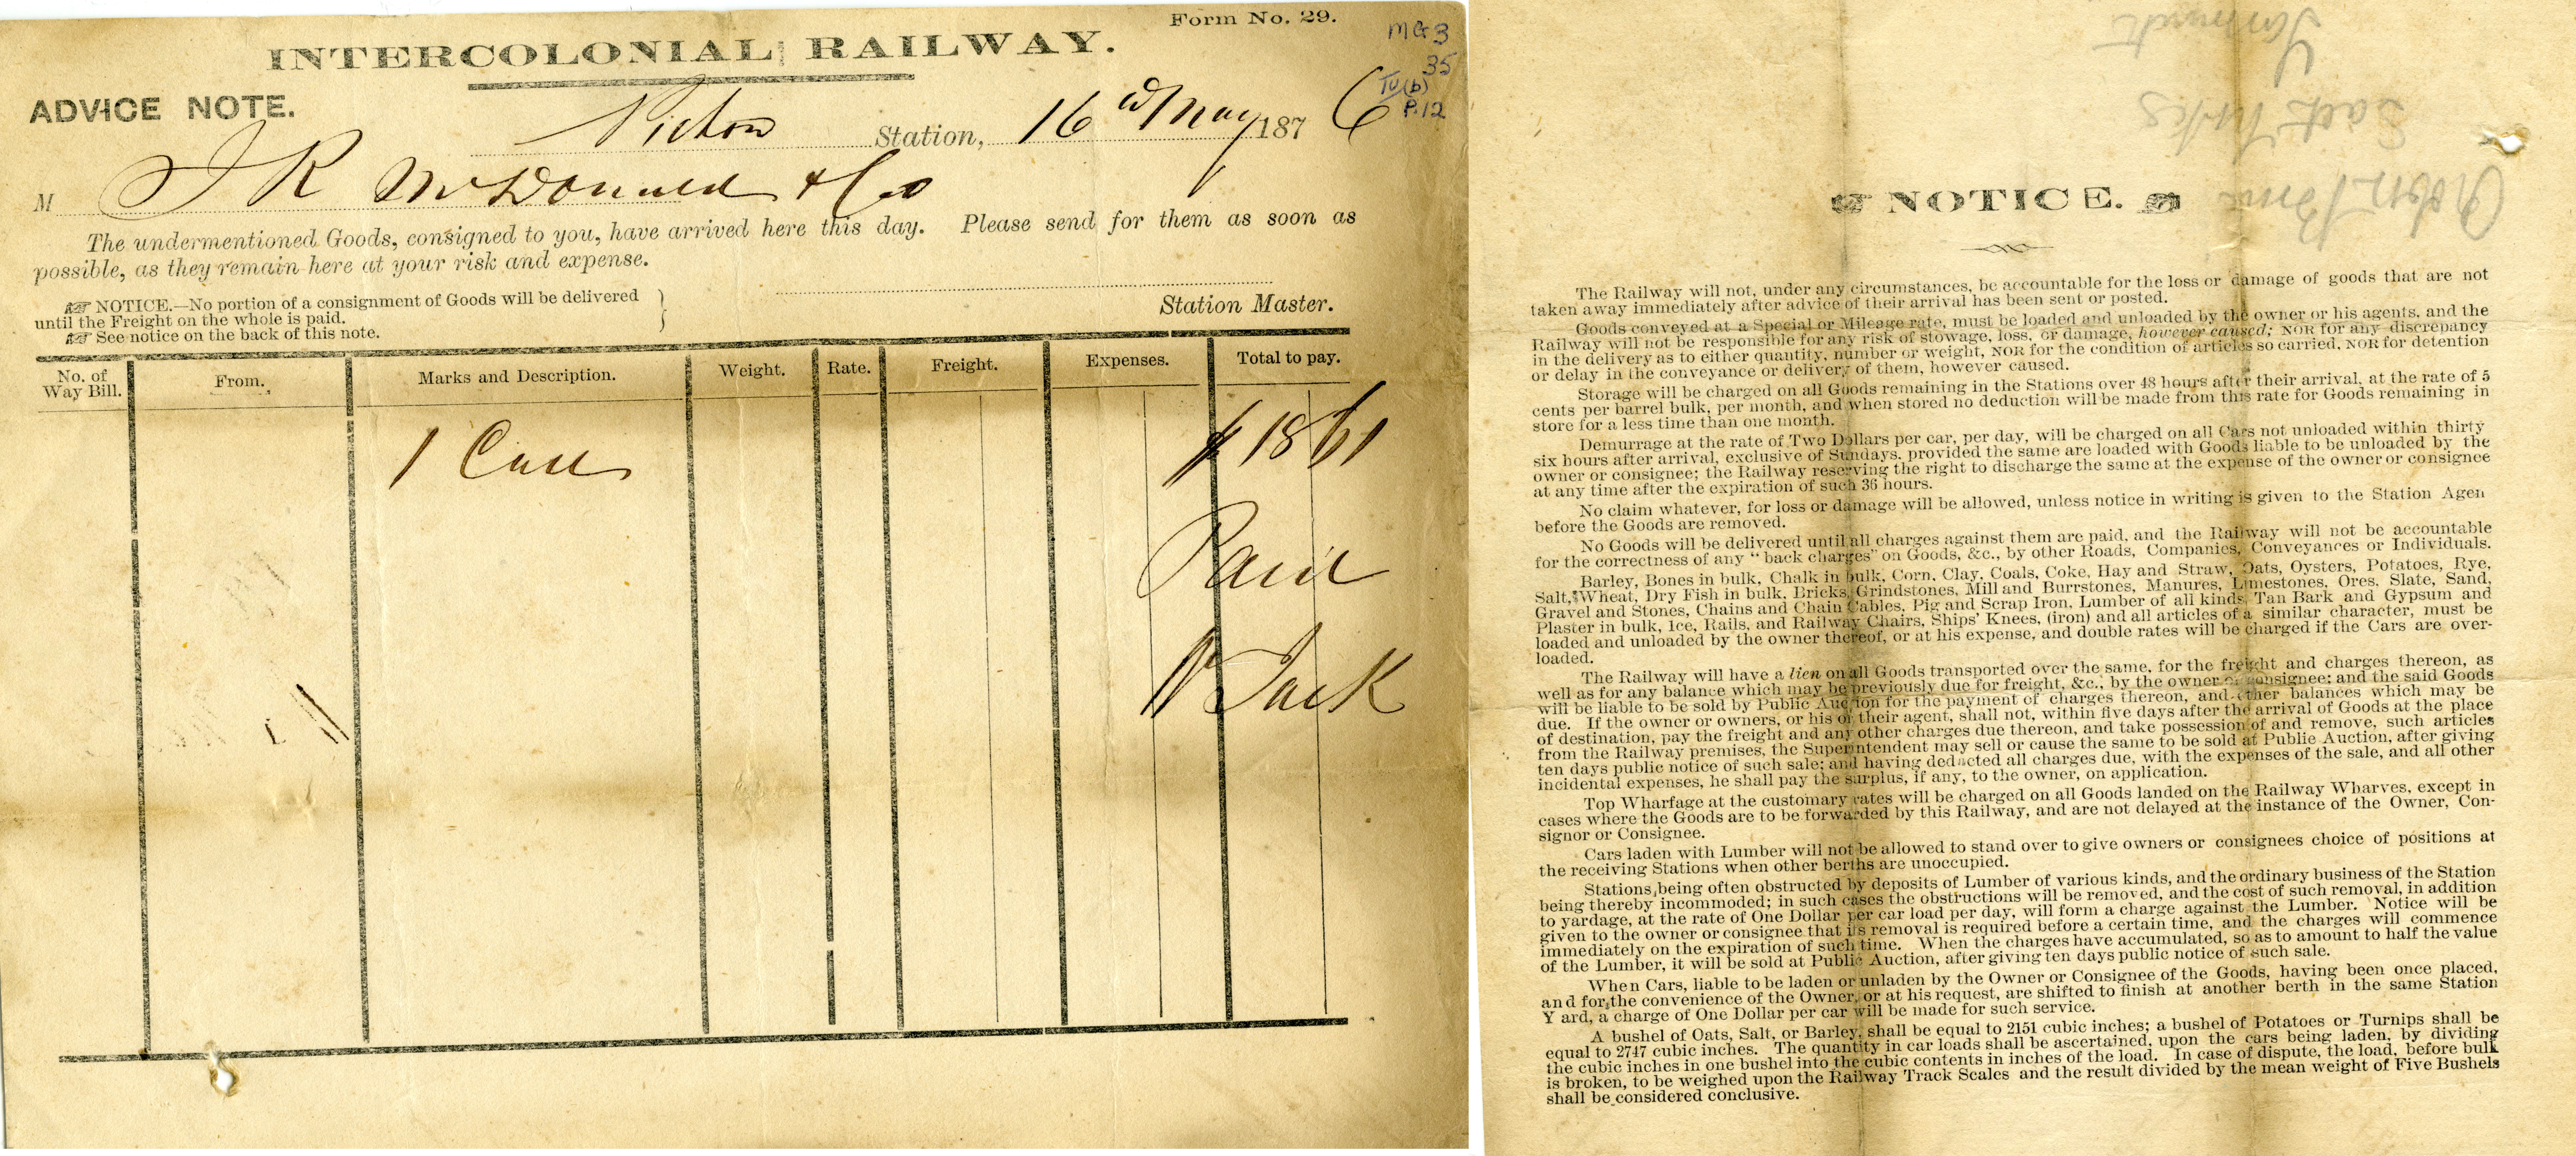 Form No. 29.
INTERCOLONIAL RAILWAY.
MG3
35
IV(b)
P.12
ADVICE NOTE.
Pictou Station, 16 May 1876
M J R McDonald & Co
The undermentioned Goods, consigned to you, have arrived here this day. Please send for them as soon as
possible, as they remain here at your risk and expense.
NOTICE.—No portion of a consignment of Goods will be delivered
until the Freight on the whole is paid.
See notice on the back of this note.
Station Master.
No. of Way Bill. From. Marks and Description. Weight. Rate. Freight. Expenses. Total to pay.
1 Case $ 18 61
Paid
Jack
NOTICE.
The Railway will not, under any circumstances, be accountable for the loss or damage of goods that are not
taken away immediately after advice of their arrival has been sent or posted.
Goods conveyed at a Special or Mileage rate, must be loaded and unloaded by the owner or his agents, and the
Railway will not be responsible for any risk of stowage, loss, or damage, however caused; NOR for any discrepancy
in the delivery as to either quantity, number or weight, NOR for the condition of articles so carried, NOR for detention
or delay in the conveyance or delivery of them, however caused.
Storage will be charged on all Goods remaining in the Stations over 48 hours after their arrival, at the rate of 5
cents per barrel bulk, per month, and when stored no deduction will be made from this rate for Goods remaining in
store for a less time than one month.
Demurrage at the rate of Two Dollars per car, per day, will be charged on all Cars not unloaded within thirty
six hours after arrival, exclusive of Sundays. provided the same are loaded with Goods liable to be unloaded by the
owner or consignee; the Railway reserving the right to discharge the same at the expense of the owner or consignee
at any time after the expiration of such 36 hours.
No claim whatever, for loss or damage will be allowed, unless notice in writing is given to the Station Agen
before the Goods are removed.
No Goods will be delivered until all charges against them are paid, and the Railway will not be accountable
for the correctness of any "back charges" on Goods, &c., by other Roads, Companies, Conveyances or Individuals.
Barley, Bones in bulk, Chalk in bulk, Corn, Clay, Coals, Coke, Hay and Straw, Oats, Oysters, Potatoes, Rye,
Salt, Wheat, Dry Fish in bulk, Bricks, Grindstones, Mill and Burrstones, Manures, Limestones, Ores, Slate, Sand,
Gravel and Stones, Chains and Chain Cables, Pig and Scrap Iron, Lumber of all kinds, Tan Bark and Gypsum and
Plaster in bulk, Ice, Rails, and Railway Chairs, Ships' Knees, (iron) and all articles of a similar character, must be
loaded and unloaded by the owner thereof, or at his expense, and double rates will be charged if the Cars are over-
loaded.
The Railway will have a lien on all Goods transported over the same, for the freight and charges thereon, as
well as for any balance which may be previously due for freight, &c., by the owner or consignee; and the said Goods
will be liable to be sold by Public Auction for the payment of charges thereon, and other balances which may be
due. If the owner or owners, or his or their agent, shall not, within five days after the arrival of Goods at the place
of destination, pay the freight and any other charges due thereon, and take possession of and remove, such articles
from the Railway premises, the Superintendent may sell or cause the same to be sold at Public Auction, after giving
ten days public notice of such sale; and having deducted all charges due, with the expenses of the sale, and all other
incidental expenses, he shall pay the surplus, if any, to the owner, on application.
Top Wharfage at the customary rates will be charged on all Goods landed on the Railway Wharves, except in
cases where the Goods are to be forwarded by this Railway, and are not delayed at the instance of the Owner, Con-
signor or Consignee.
Cars laden with Lumber will not be allowed to stand over to give owners or consignees choice of positions at
the receiving Stations when other berths are unoccupied.
Stations being often obstructed by deposits of Lumber of various kinds, and the ordinary business of the Station
being thereby incommoded; in such cases the obstructions will be removed, and the cost of such removal, in addition
to yardage, at the rate of One Dollar per car load per day, will form a charge against the Lumber. Notice will be
given to the owner or consignee that its removal is required before a certain time, and the charges will commence
immediately on the expiration of such time. When the charges have accumulated, so as to amount to half the value
of the Lumber, it will be sold at Public Auction, after giving ten days public notice of such sale.
When Cars, liable to be laden or unladen by the Owner or Consignee of the Goods, having been once placed,
and for the convenience of the Owner, or at his request, are shifted to finish at another berth in the same Station
Yard, a charge of One Dollar per car will be made for such service.
A bushel of Oats, Salt, or Barley, shall be equal to 2151 cubic inches; a bushel of Potatoes or Turnips shall be
equal to 2747 cubic inches. The quantity in car loads shall be ascertained, upon the cars being laden, by dividing
the cubic inches in one bushel into the cubic contents in inches of the load. In case of dispute, the load, before bulk
is broken, to be weighed upon the Railway Track Scales and the result divided by the mean weight of Five Bushels
shall be considered conclusive.